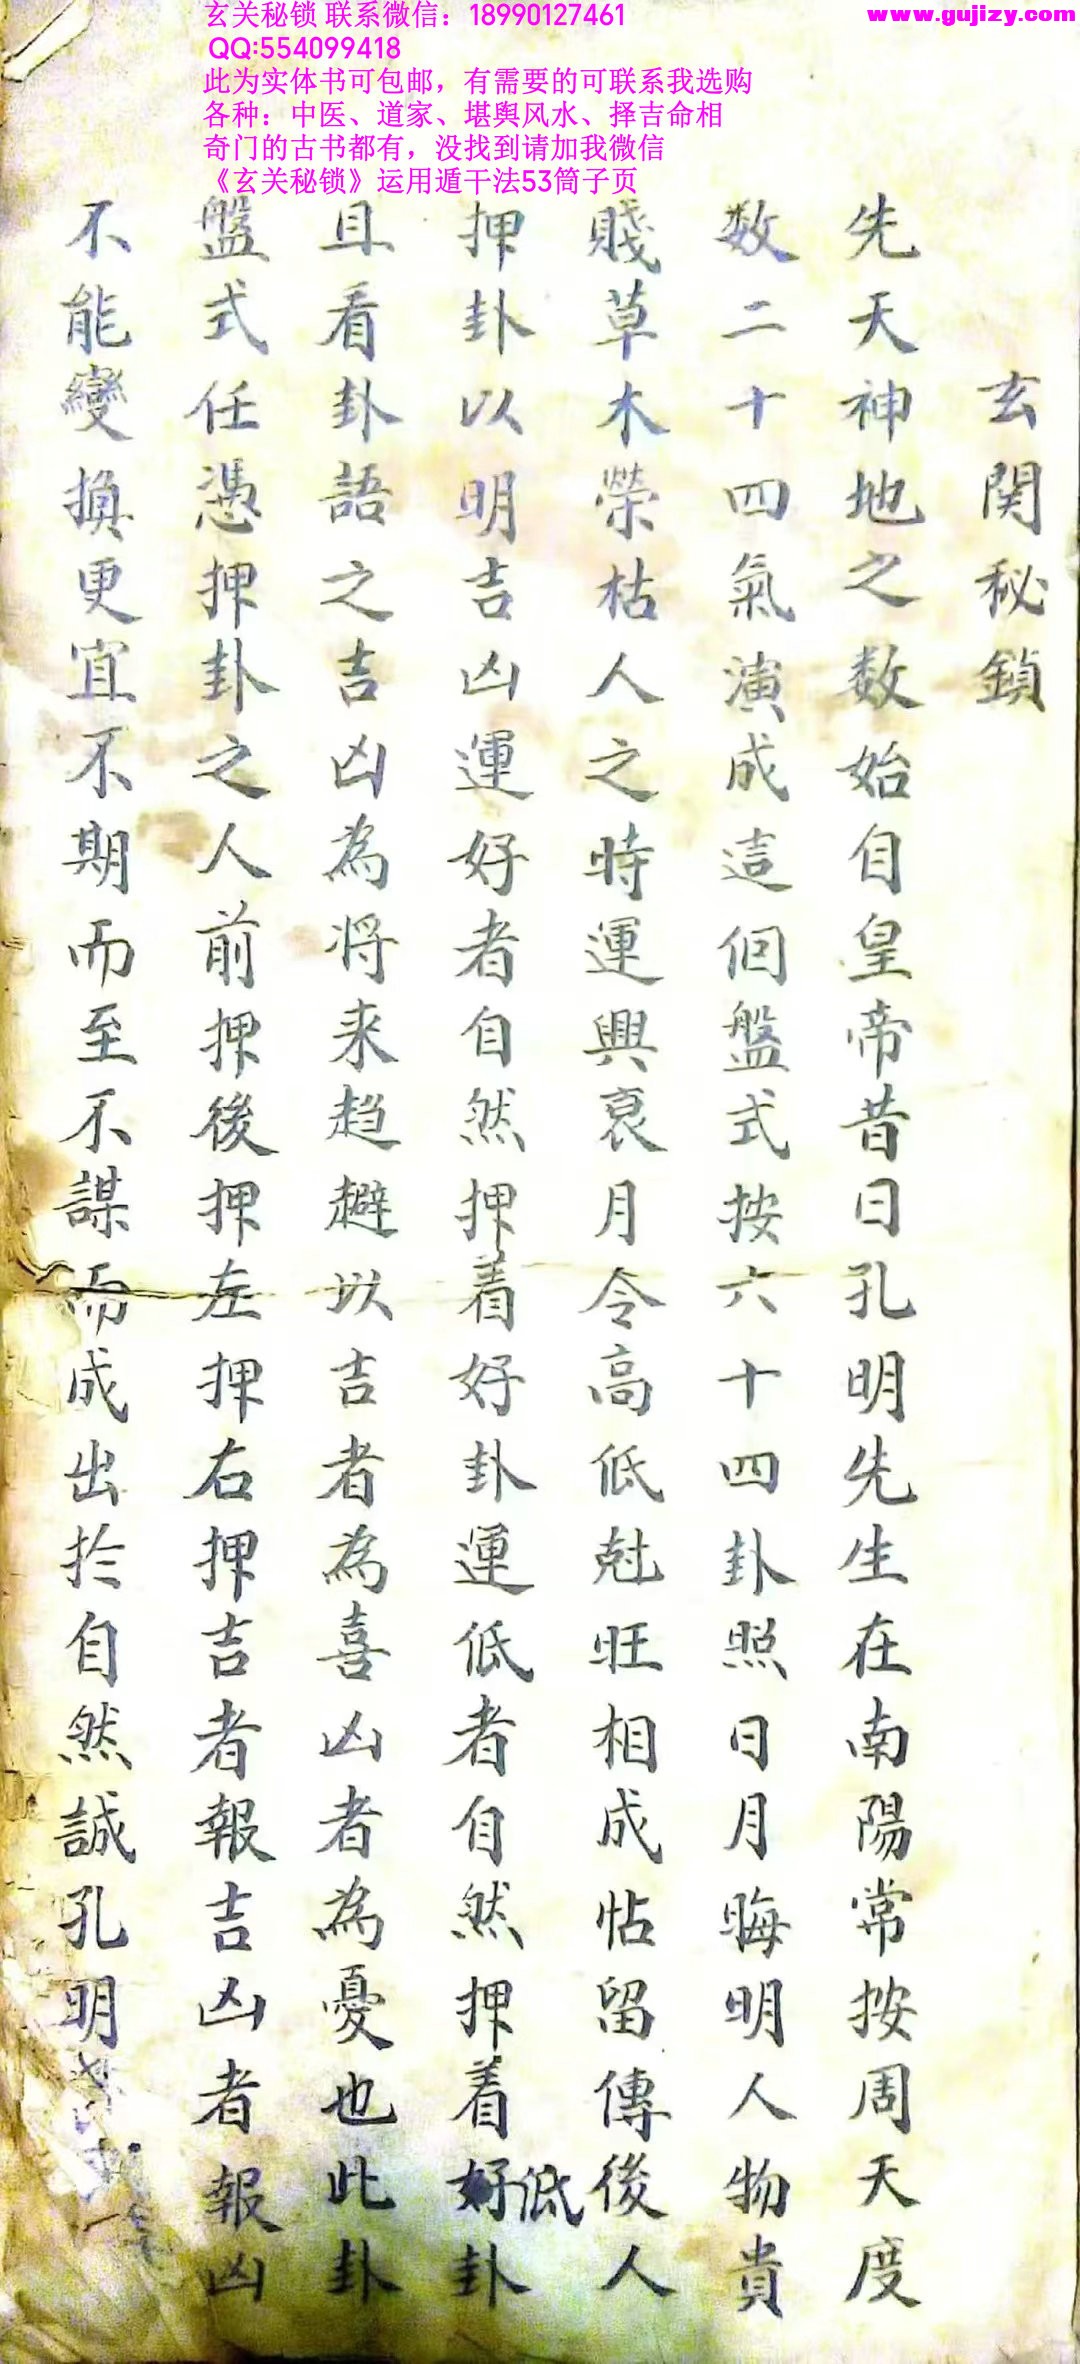 玄关秘锁 联系微信：18990127461
QQ:554099418
此为实体书可包邮，有需要的可联系我选购
各种：中医、道家、堪舆风水、择吉命相
奇门的古书都有，没找到请加我微信
《玄关秘锁》运用遁干法53筒子页
www.gujizy.com
玄関秘鎖
先天神地之数始自皇帝昔日孔明先生在南陽常按周天度
数二十四氣演成這個盤式按六十四卦照日月晦明人物貴
賤草木榮枯人之時運興衰月令高低尅旺相成帖留傳後人
押卦以明吉凶運好者自然押着好卦運低者自然押着好低卦
且看卦語之吉凶為将来趋避以吉者為喜凶者為憂也此卦
盤式任憑押卦之人前押後押左押右押吉者報吉凶者報凶
不能變換更宜不期而至不謀而成出扵自然誠孔明